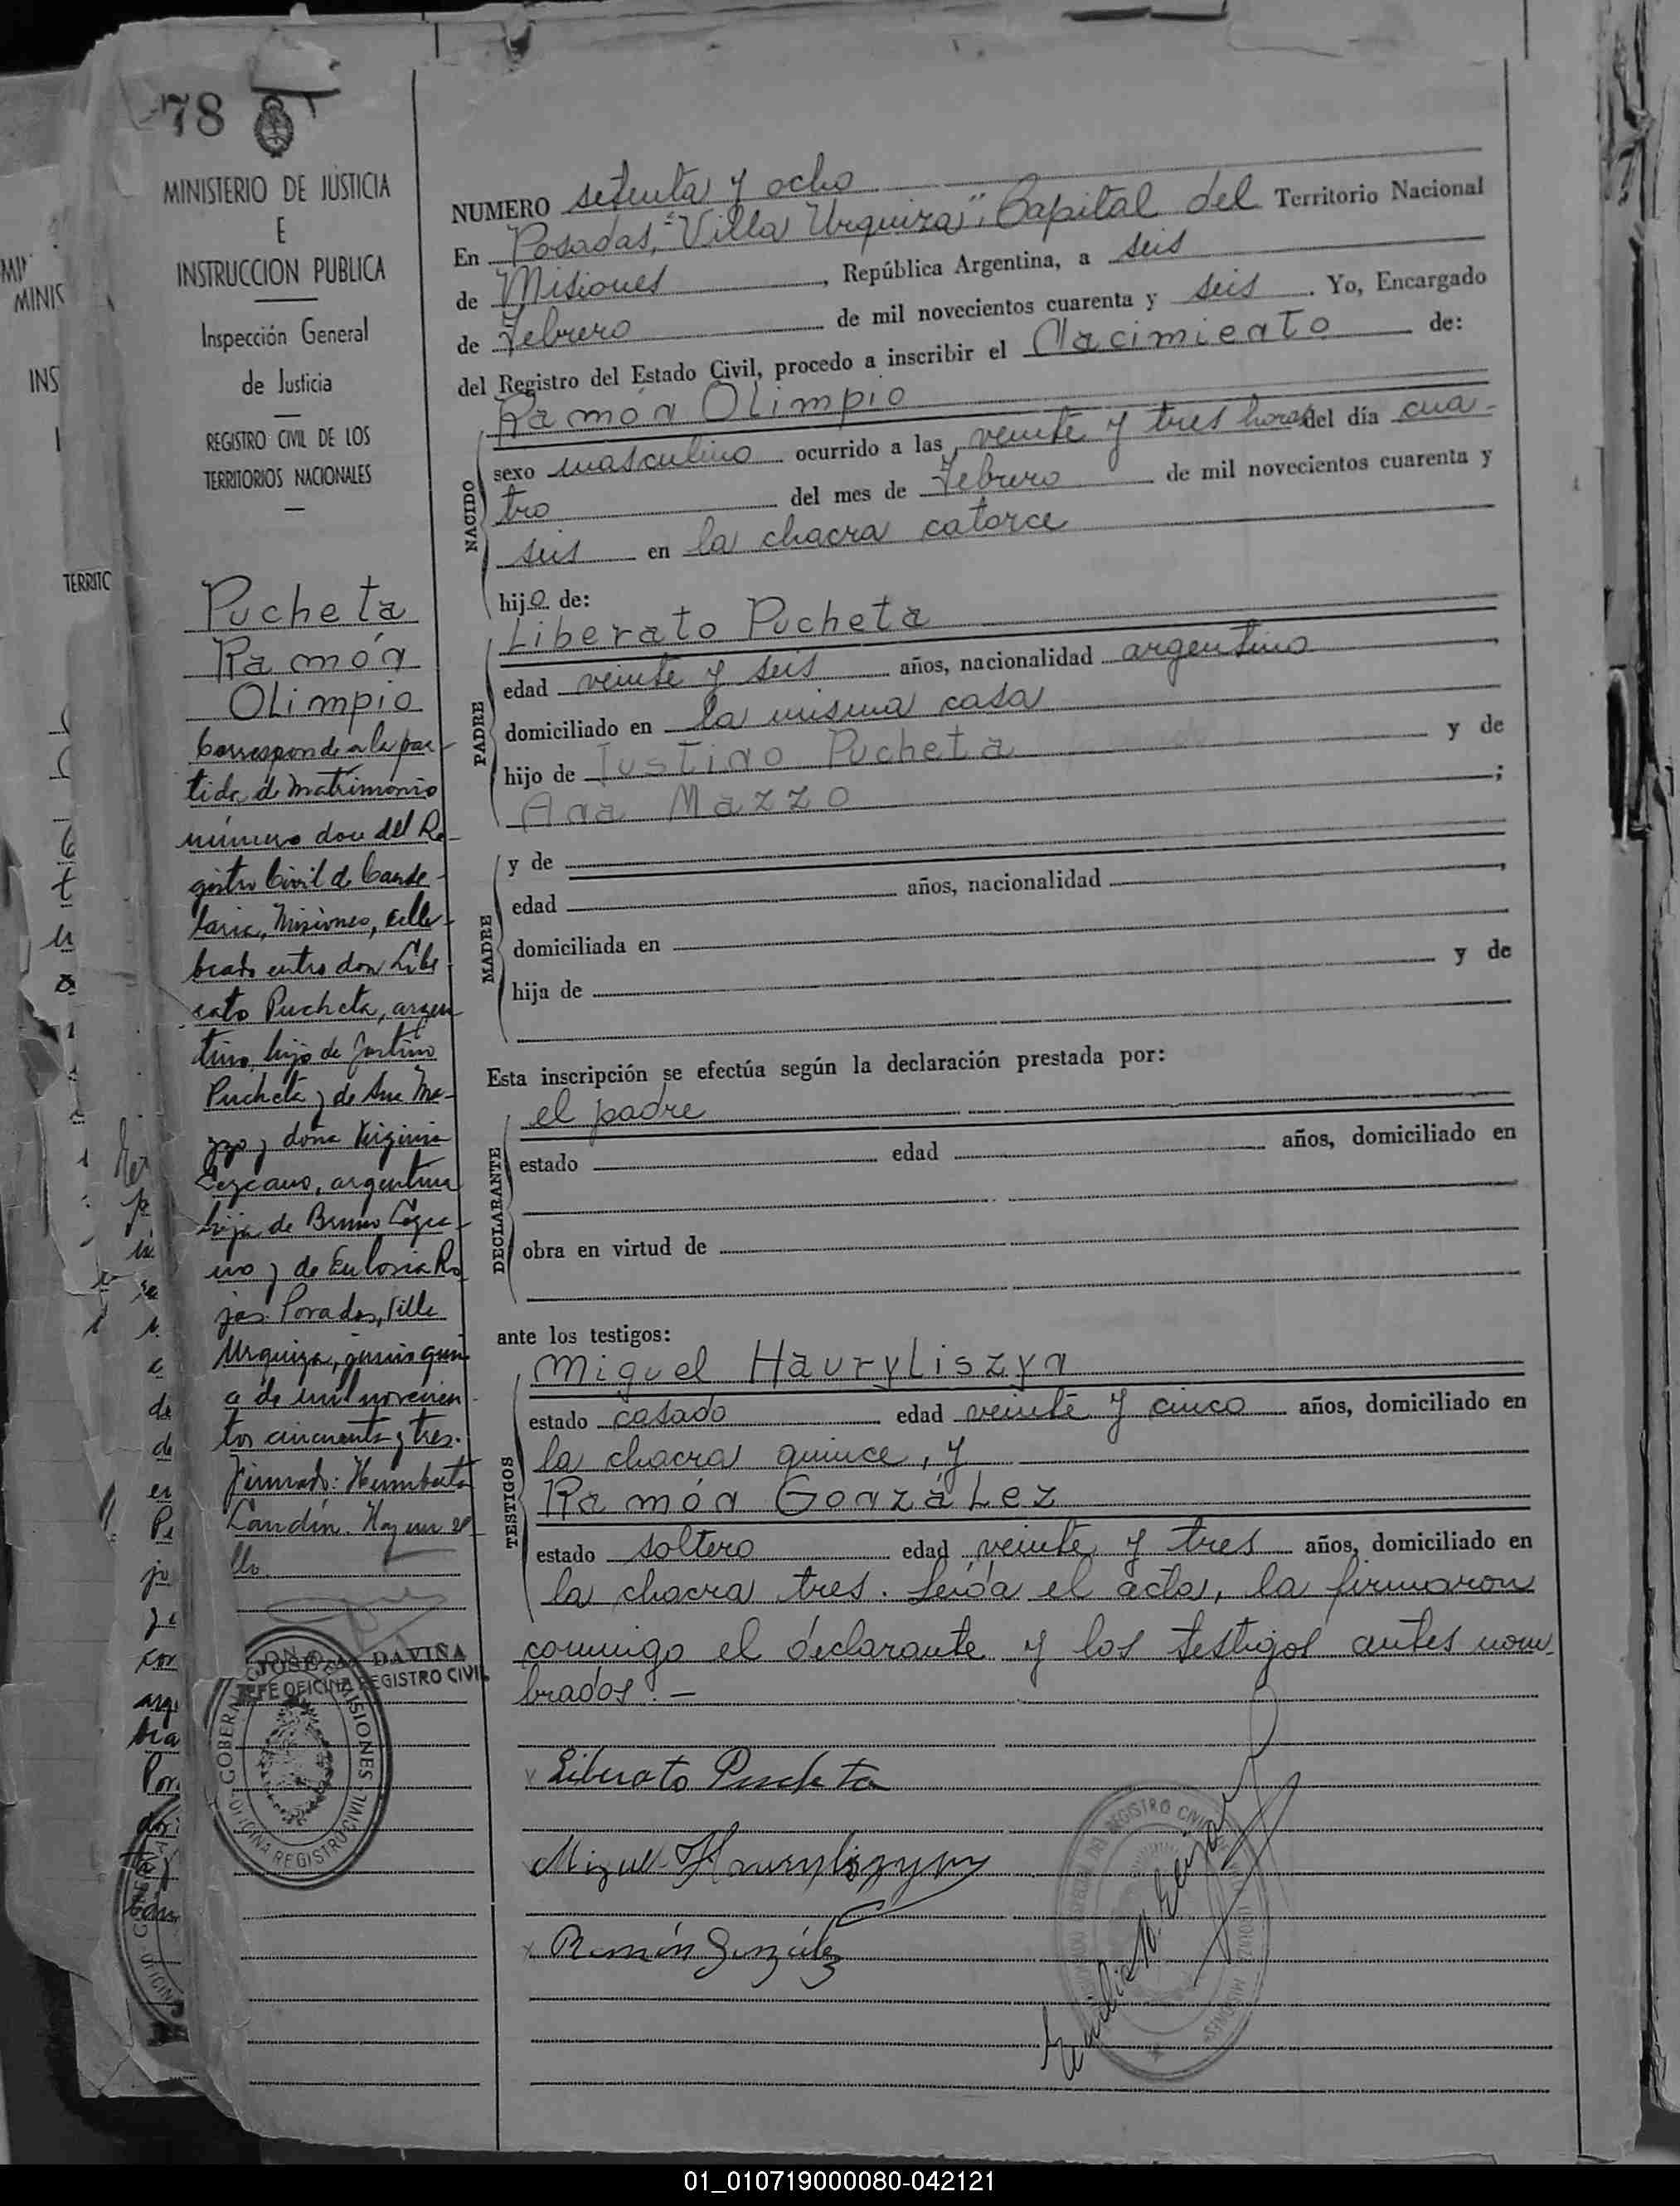 78
MINISTERIO DE JUSTICIA
E
INSTRUCCION PUBLICA
Inspección General
de Justicia
REGISTRO CIVIL DE LOS
TERRITORIOS NACIONALES
Pucheta
Ramón
Olimpio
Corresponde a la par-
tida de matrimonio
número doce del Re-
gistro Civil de Cande-
laria, Misiones, cele-
brado entre don Libe
rato Pucheta, argen
tino, hijo de Justino
Pucheta y de Ana Ma-
zzo y doña Virginia
Lezcano, argentina
hija de Bruno Lezca-
no y de Eulosia Ro
jas. Posadas, Villa
Urquiza, junio quin
ce de mil novecien
tos cincuenta y tres.
Firmado: Humberto
Landin. Hay un se
llo.
JOSE DAVIÑA
JEFE OFICINA REGISTRO CIVIL
GOBERNACION DE MISIONES
OFICINA REGISTRO CIVIL
NUMERO setenta y ocho
En Posadas, "Villa Urquiza", Capital del Territorio Nacional
de Misiones, República Argentina, a seis
de Febrero de mil novecientos cuarenta y seis. Yo, Encargado
del Registro del Estado Civil, procedo a inscribir el Nacimiento de:
NACIDO
Ramón Olimpio
sexo masculino ocurrido a las veinte y tres horas del día cua-
tro del mes de Febrero de mil novecientos cuarenta y
seis en la chacra catorce
hijo de:
PADRE
Liberato Pucheta
edad veinte y seis años, nacionalidad argentino,
domiciliado en la misma casa
hijo de Justino Pucheta y de
Ana Mazzo;
MADRE
y de
edad años, nacionalidad,
domiciliada en
hija de y de
Esta inscripción se efectúa según la declaración prestada por:
DECLARANTE
el padre
estado edad años, domiciliado en
obra en virtud de
ante los testigos:
TESTIGOS
Miguel Hauryliszyn
estado casado edad veinte y cinco años, domiciliado en
la chacra quince, y
Ramón González
estado soltero edad veinte y tres años, domiciliado en
la chacra tres. Leída el acta, la firmaron
conmigo el declarante y los testigos antes nom-
brados. -
Liberato Pucheta
Miguel Hauryliszyn
Ramón González
01_010719000080-042121